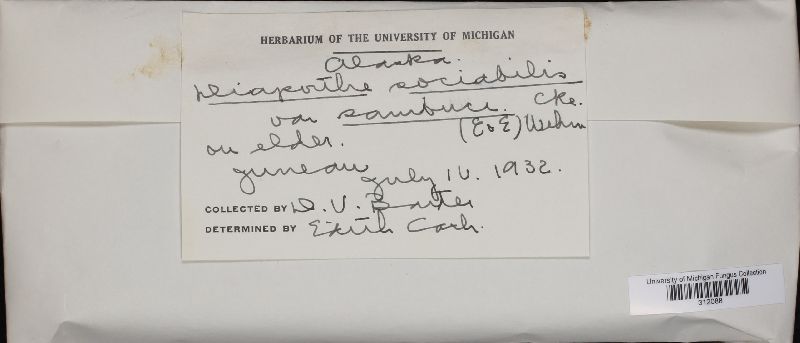 HERBARIUM OF THE UNIVERSITY OF MICHIGAN
Alaska.
Diaporthe sociabilis
var sambuci. Cke.
on elder. (E&E) Wehm
Juneau July 16. 1932.
COLLECTED BY D. V. Baxter
DETERMINED BY Edith Cash.
University of Michigan Fungus Collection
312088